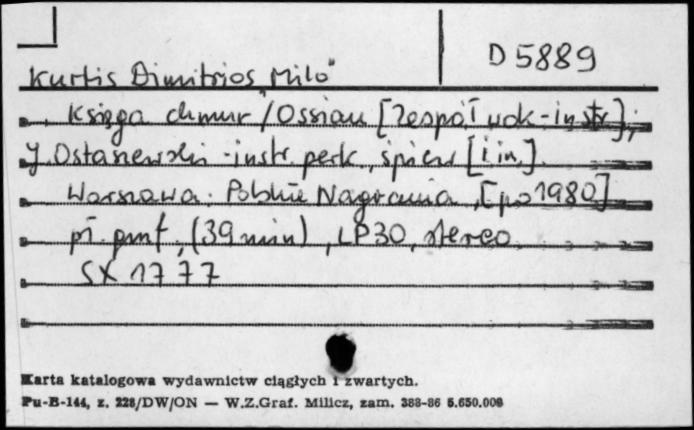 D 5889
Kurtis Dimitrios "Milo"
Księga chmur / Ossian [Zespół wok-instr];
J. Ostaszewski - instr. perk., śpiew [i in.].
Warszawa: Polskie Nagrania, [po 1980]
pł. gmf., (39 min), LP30, stereo
SX 1777
Karta katalogowa wydawnictw ciągłych i zwartych.
Pu-B-144, z. 228/DW/ON — W.Z.Graf. Milicz, zam. 388-86 5.650.000